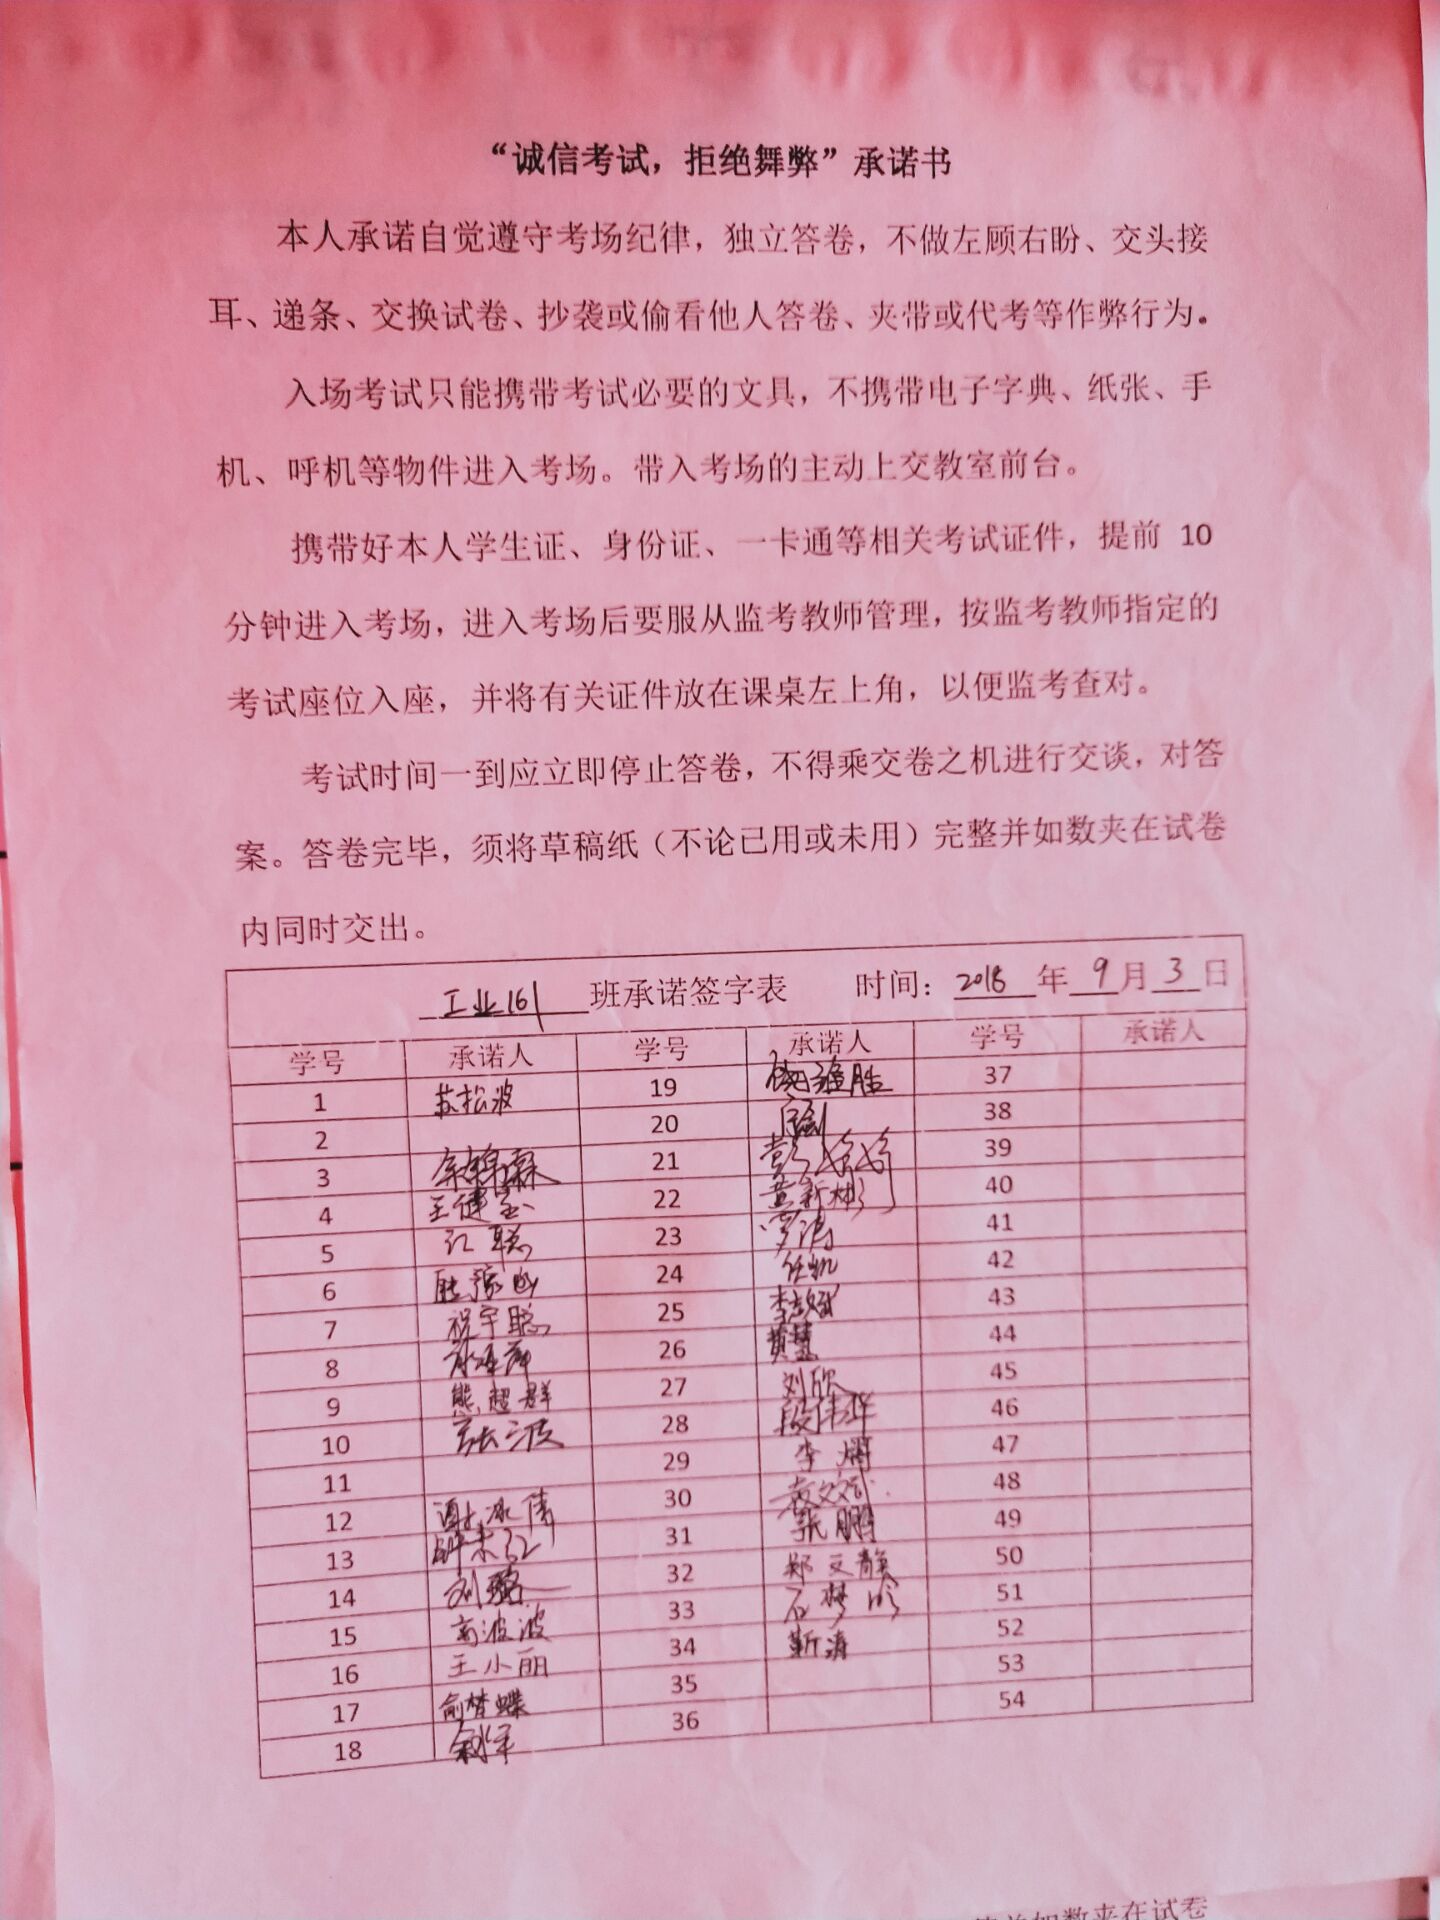 “诚信考试，拒绝舞弊”承诺书
本人承诺自觉遵守考场纪律，独立答卷，不做左顾右盼、交头接
耳、递条、交换试卷、抄袭或偷看他人答卷、夹带或代考等作弊行为。
入场考试只能携带考试必要的文具，不携带电子字典、纸张、手
机、呼机等物件进入考场。带入考场的主动上交教室前台。
携带好本人学生证、身份证、一卡通等相关考试证件，提前 10
分钟进入考场，进入考场后要服从监考教师管理，按监考教师指定的
考试座位入座，并将有关证件放在课桌左上角，以便监考查对。
考试时间一到应立即停止答卷，不得乘交卷之机进行交谈，对答
案。答卷完毕，须将草稿纸（不论已用或未用）完整并如数夹在试卷
内同时交出。
工业161 班承诺签字表 时间：2018 年 9 月 3 日
学号 承诺人 学号 承诺人 学号 承诺人
1 苏松波 19 37
2 20 38
3 21 39
4 王健 22 黄新彬 40
5 江聪 23 罗涛 41
6 24 任凯 42
7 祝宇聪 25 43
8 26 黄慧 44
9 熊超群 27 刘欣 45
10 28 段伟华 46
11 29 李 47
12 谢冰倩 30 48
13 31 张鹏 49
14 刘璐 32 郑文静 50
15 高波波 33 石梦 51
16 王小丽 34 靳涛 52
17 俞梦蝶 35 53
18 36 54
如数夹在试卷